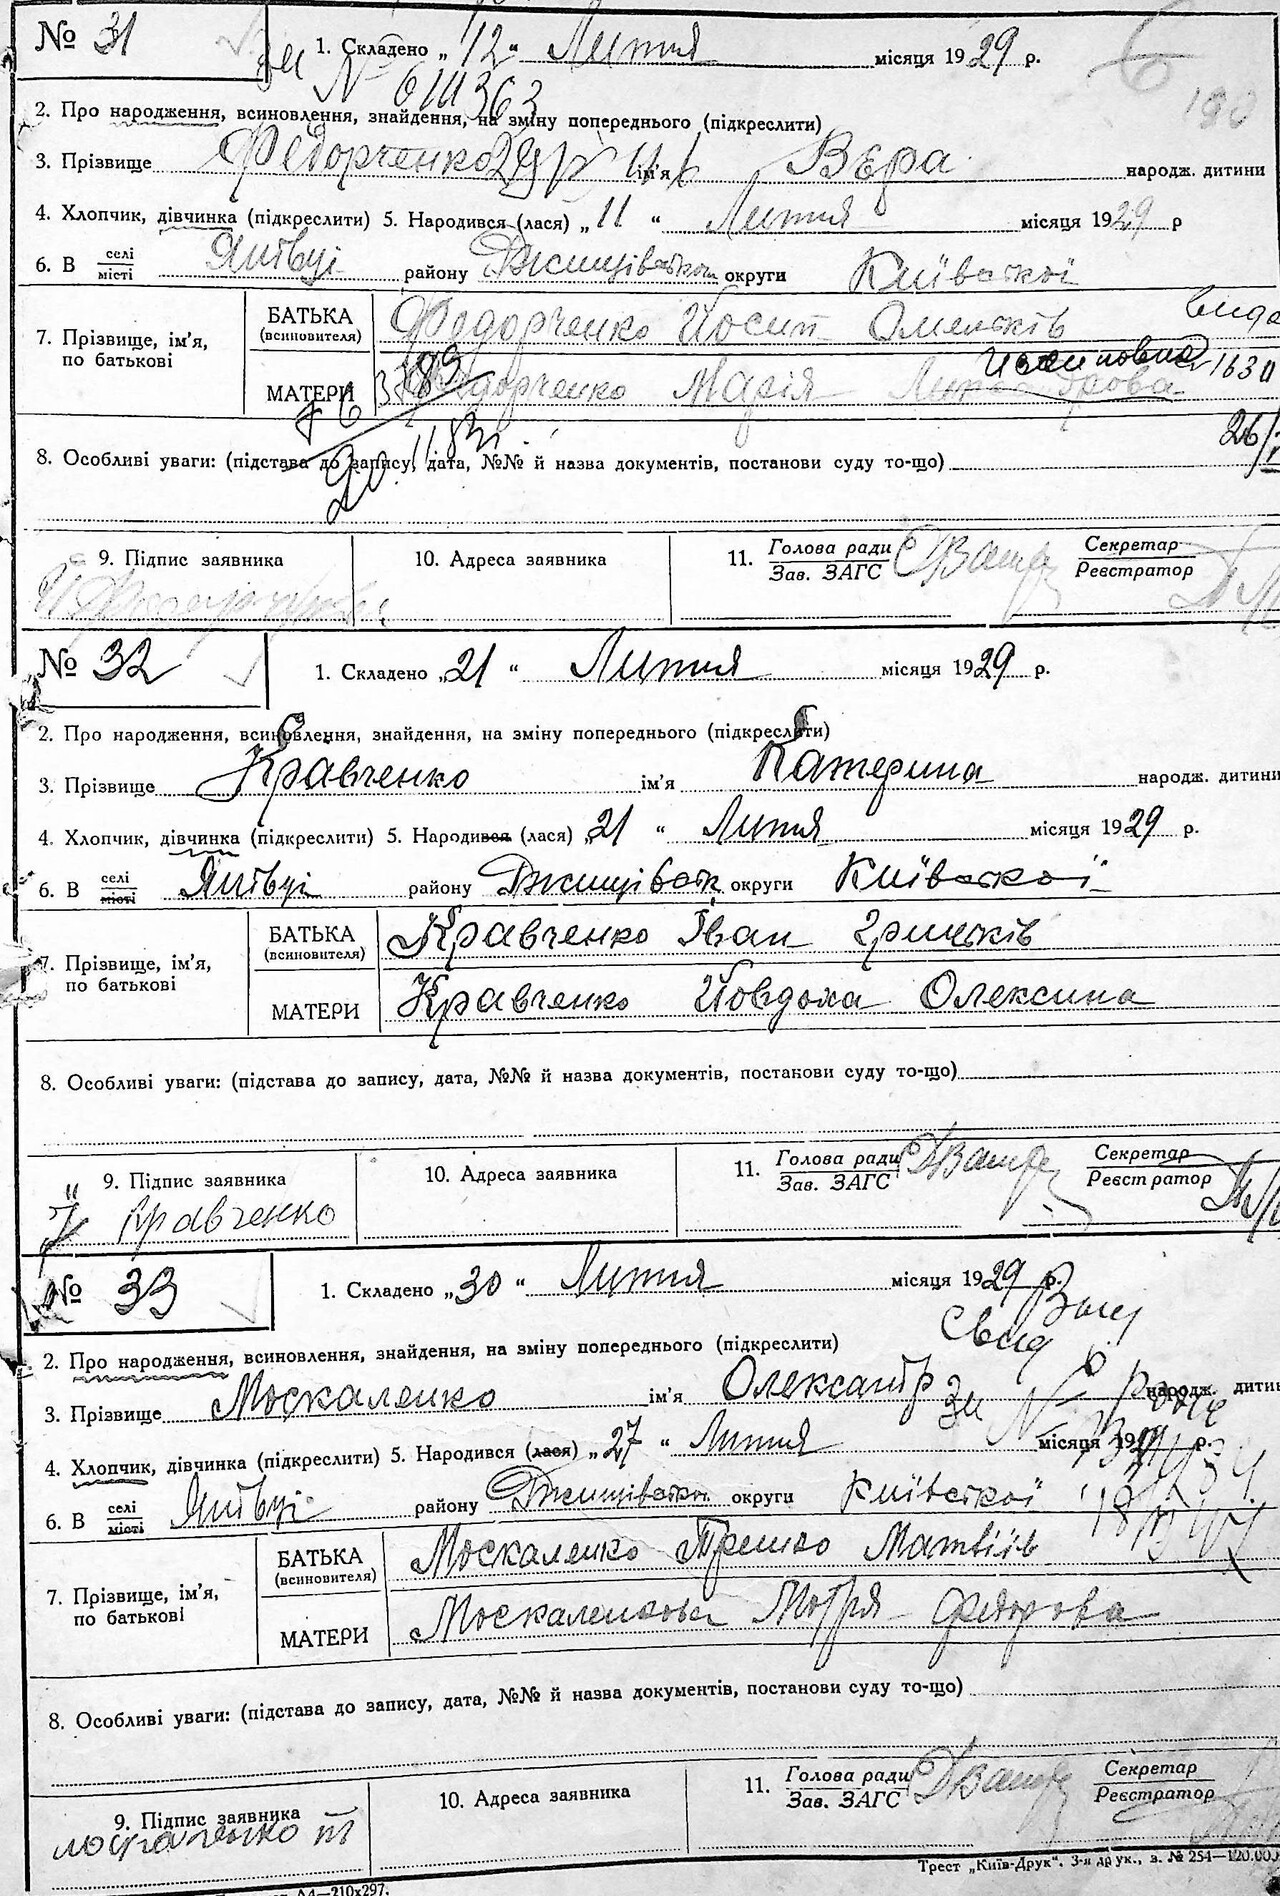 № 31
1. Складено „12“ Липня місяця 1929 р.
за № 611363
2. Про народження, всиновлення, знайдення, на зміну попереднього (підкреслити)
3. Прізвище Федорченко ім'я Вєра народж. дитини
4. Хлопчик, дівчинка (підкреслити) 5. Народився (лася) „11“ Липня місяця 1929 р
6. В селі/місті Яцівці району Ржищівськом округи Київської
7. Прізвище, ім'я, по батькові
БАТЬКА (всиновителя) Федорченко Йосип Омельків
МАТЕРИ Федорченко Марія
8. Особливі уваги: (підстава до запису, дата, №№ й назва документів, постанови суду то-що)
9. Підпис заявника
10. Адреса заявника
11. Голова ради / Зав. ЗАГС
Секретар / Реєстратор
№ 32
1. Складено „21“ Липня місяця 1929 р.
2. Про народження, всиновлення, знайдення, на зміну попереднього (підкреслити)
3. Прізвище Кравченко ім'я Катерина народж. дитини
4. Хлопчик, дівчинка (підкреслити) 5. Народився (лася) „21“ Липня місяця 1929 р.
6. В селі/місті району Ржищівськ округи Київської
7. Прізвище, ім'я, по батькові
БАТЬКА (всиновителя) Кравченко Іван Гриньків
МАТЕРИ Кравченко Йовдоха Олексина
8. Особливі уваги: (підстава до запису, дата, №№ й назва документів, постанови суду то-що)
9. Підпис заявника
Кравченко
10. Адреса заявника
11. Голова ради / Зав. ЗАГС
Секретар / Реєстратор
№ 33
1. Складено „30“ Липня місяця 1929 р.
2. Про народження, всиновлення, знайдення, на зміну попереднього (підкреслити)
3. Прізвище Москаленко ім'я Олександр народж. дитини
4. Хлопчик, дівчинка (підкреслити) 5. Народився (лася) „27“ Липня місяця 1929 р.
6. В селі/місті району Ржищівської округи Київської
7. Прізвище, ім'я, по батькові
БАТЬКА (всиновителя) Москаленко Матвіїв
МАТЕРИ Москаленкова Мотря Федорова
8. Особливі уваги: (підстава до запису, дата, №№ й назва документів, постанови суду то-що)
9. Підпис заявника
10. Адреса заявника
11. Голова ради / Зав. ЗАГС
Секретар / Реєстратор
Трест „Київ-Друк“. 3-я друк., з. № 254—120.00
А4—210х297.